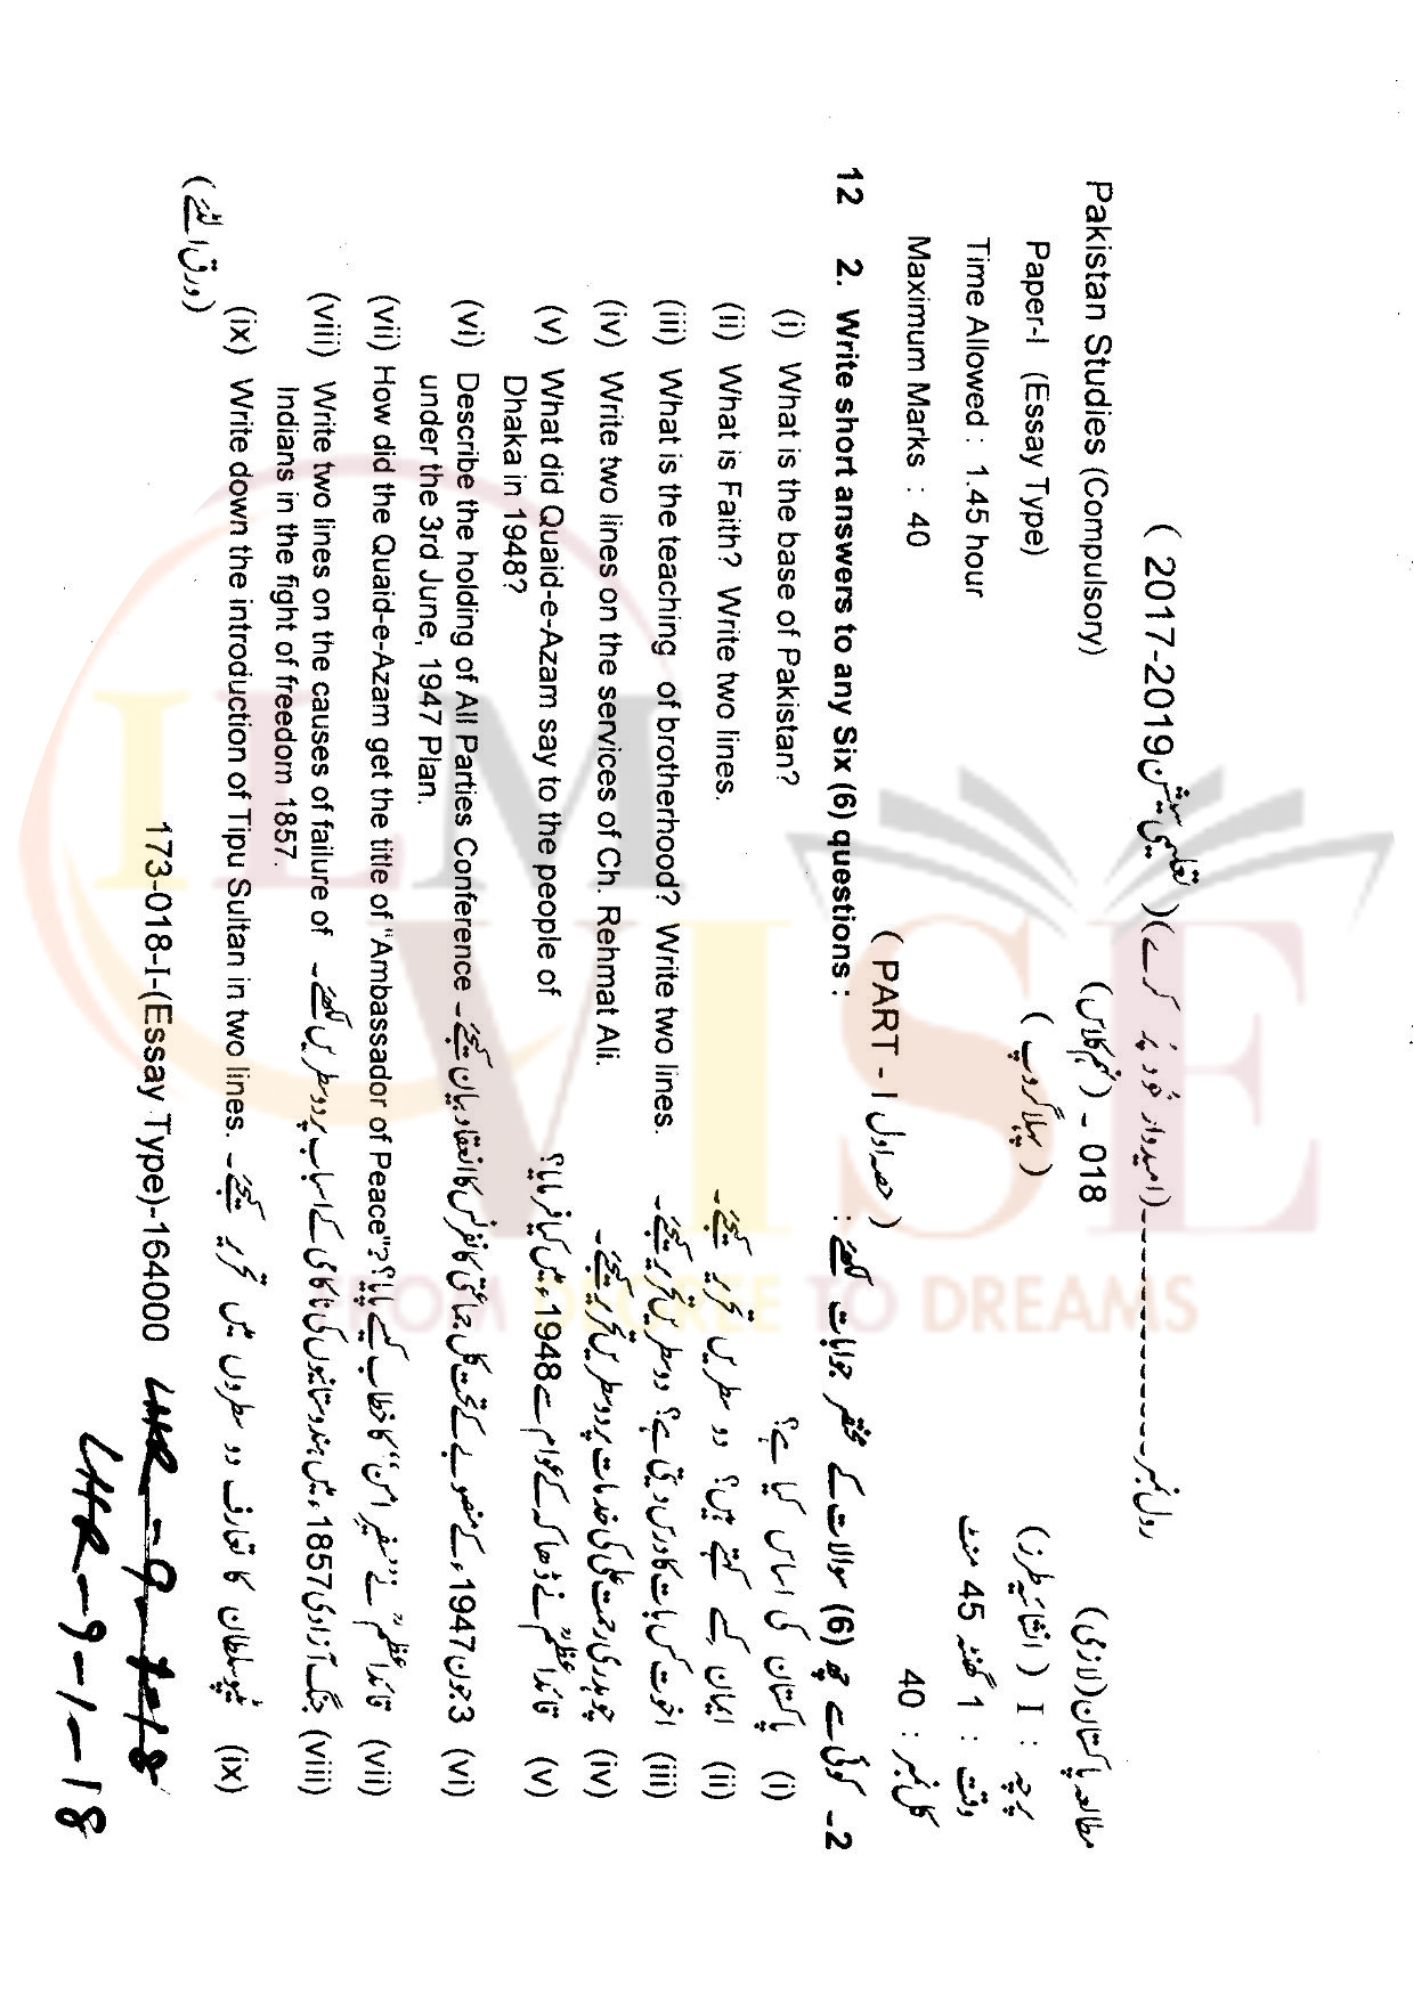 رول نمبر ------------(امیدوار خود پُر کرے)( تعلیمی سیشن 2017-2019 )
Pakistan Studies (Compulsory) 018 - (نہم کلاس) مطالعہ پاکستان(لازمی)
Paper-I (Essay Type) ( پہلا گروپ ) پرچہ : I ( انشائیہ طرز)
Time Allowed : 1.45 hour وقت : 1 گھنٹہ 45 منٹ
Maximum Marks : 40 کل نمبر : 40
( PART - I حصہ اول )
12 2. Write short answers to any Six (6) questions : 2 ۔ کوئی سے چھ (6) سوالات کے مختصر جوابات لکھئے :
(i) What is the base of Pakistan? (i) پاکستان کی اساس کیا ہے؟
(ii) What is Faith? Write two lines. (ii) ایمان کسے کہتے ہیں؟ دو سطریں تحریر کیجئے۔
(iii) What is the teaching of brotherhood? Write two lines. (iii) اخوت کس بات کا درس دیتی ہے؟ دو سطریں تحریر کیجئے۔
(iv) Write two lines on the services of Ch. Rehmat Ali. (iv) چوہدری رحمت علی کی خدمات پر دو سطریں تحریر کیجئے۔
(v) What did Quaid-e-Azam say to the people of (v) قائداعظمؒ نے ڈھاکہ کے عوام سے 1948ء میں کیا فرمایا؟
Dhaka in 1948?
(vi) Describe the holding of All Parties Conference (vi) 3 جون 1947ء کے منصوبے کے تحت کل جماعتی کانفرنس کا انعقاد بیان کیجئے۔
under the 3rd June, 1947 Plan.
(vii) How did the Quaid-e-Azam get the title of "Ambassador of Peace"? (vii) قائداعظمؒ نے ’’سفیرِ امن‘‘ کا خطاب کیسے پایا؟
(viii) Write two lines on the causes of failure of (viii) جنگ آزادی 1857ء میں ہندوستانیوں کی ناکامی کے اسباب پر دو سطریں لکھئے۔
Indians in the fight of freedom 1857.
(ix) Write down the introduction of Tipu Sultan in two lines. (ix) ٹیپو سلطان کا تعارف دو سطروں میں تحریر کیجئے۔
(ورق الٹئے)
173-018-I-(Essay Type)-164000
LHR-9-1-18
ILM
VISE
FROM DEGREE TO DREAMS